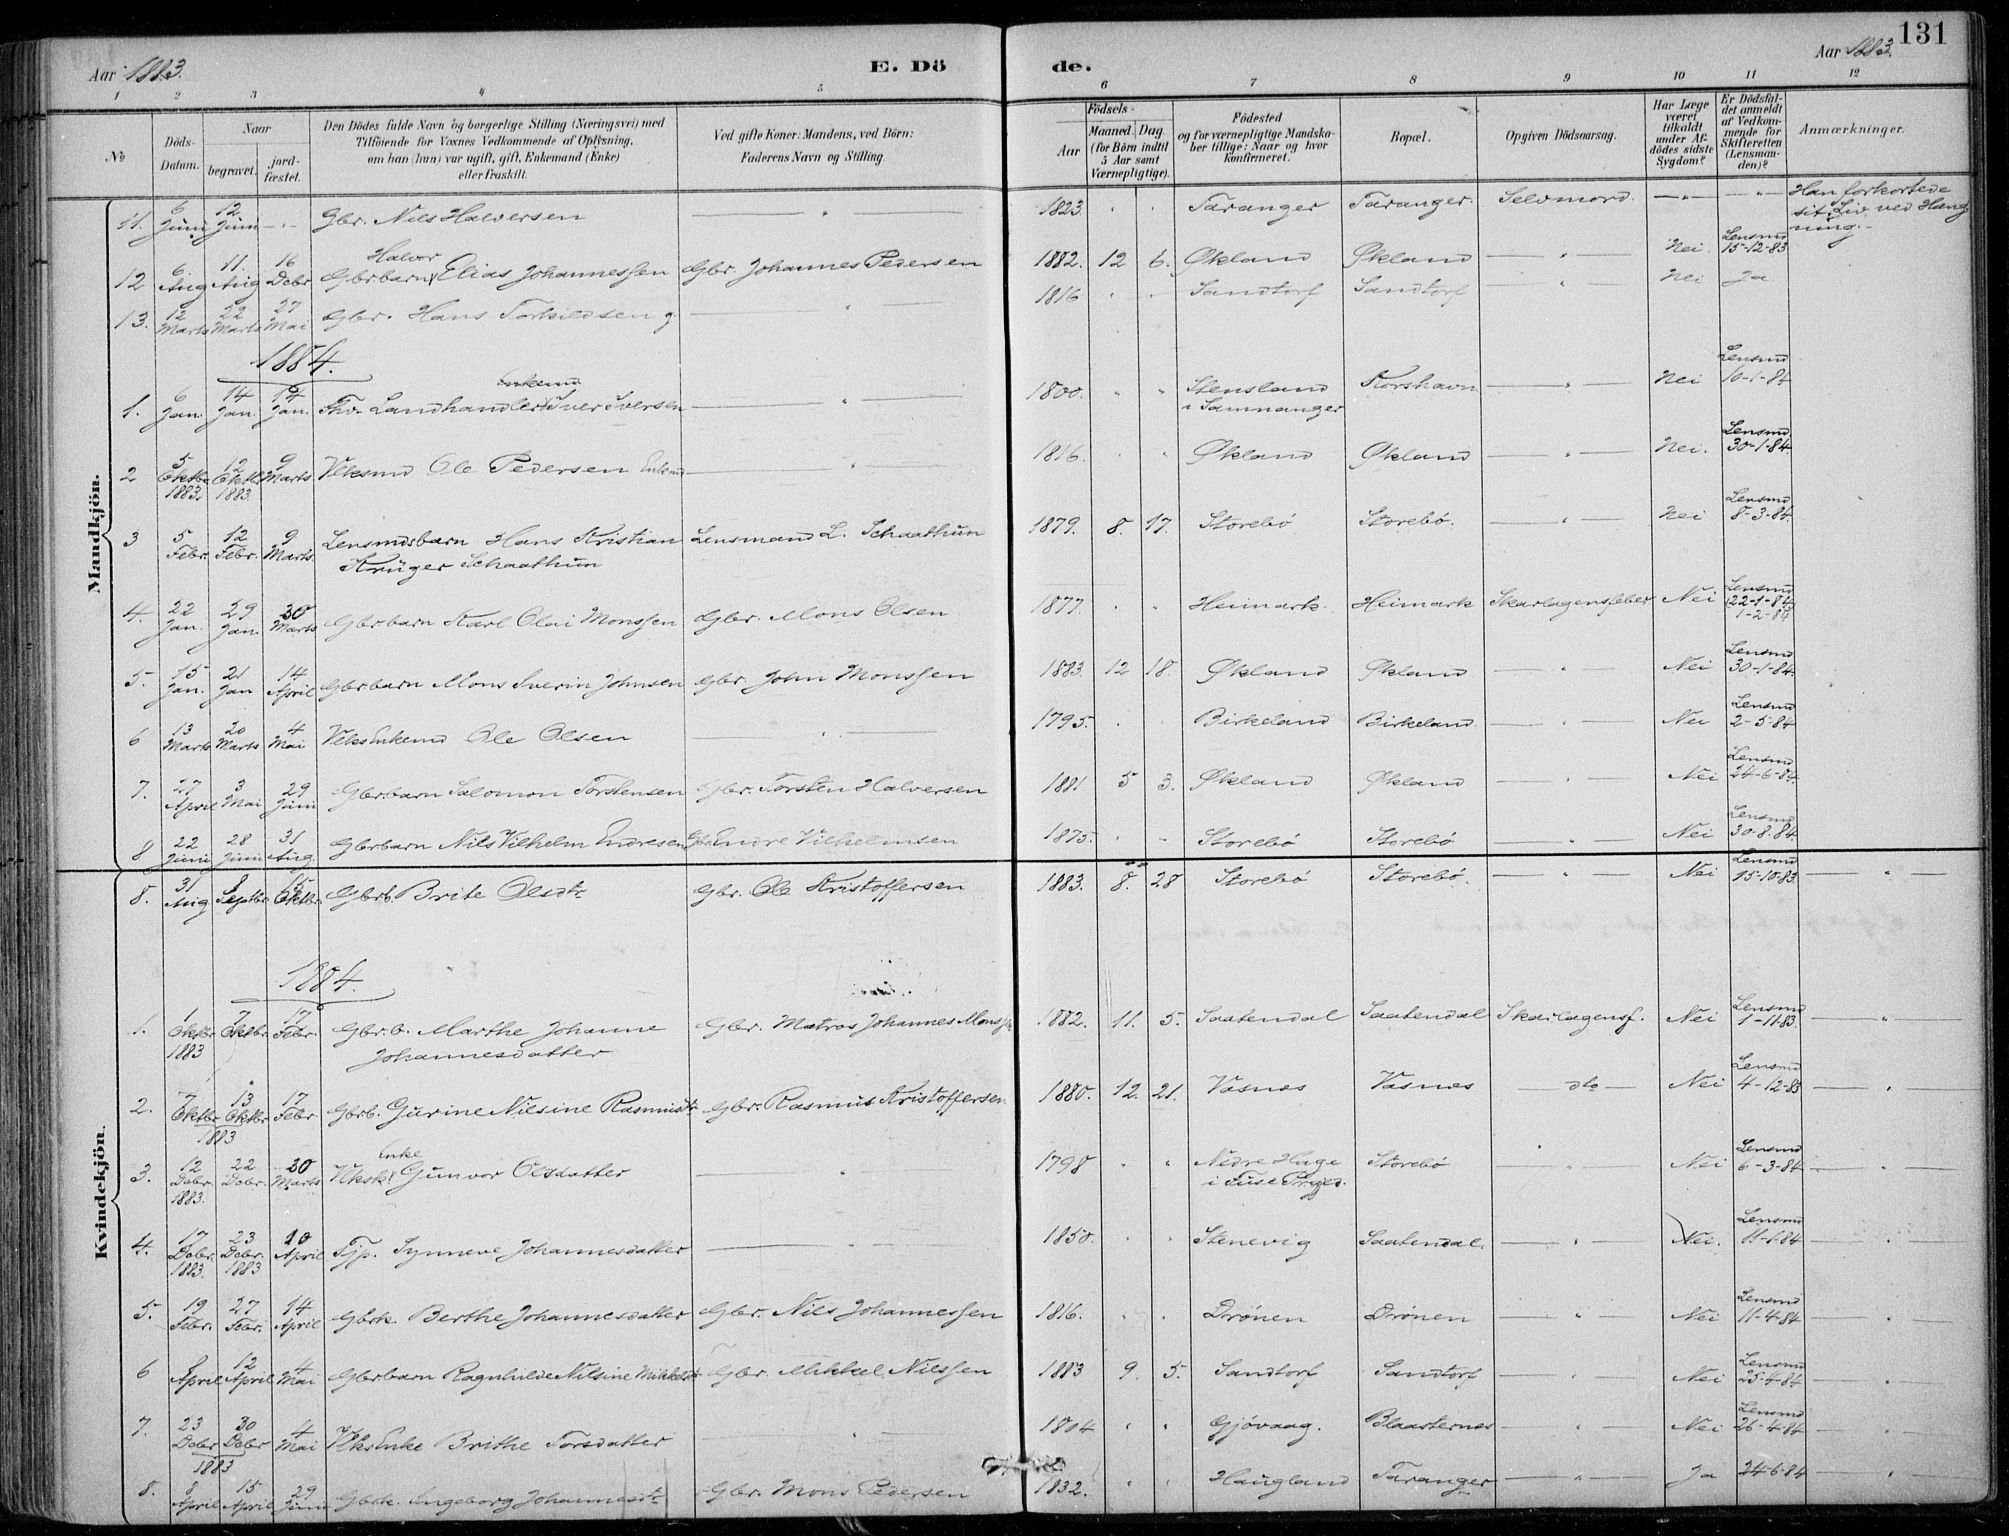 131
Aar 1883.
E. Dö
de.
Aar 1883.
1 2 3 4 5 6 7 8 9 10 11 12
No
Döds-Datum.
Naar
begravet.
jord-fæstet.
Den Dödes fulde Navn og borgerlige Stilling (Næringsvei) med
Tilföiende for Voxnes Vedkommende af Oplysning,
om han (hun) var ugift, gift, Enkemand (Enke)
eller fraskilt.
Ved gifte Koner: Mandens, ved Börn:
Faderens Navn og Stilling.
Födsels-
Aar
Maaned. Dag.
(for Börn indtil
5 Aar samt
Værnepligtige).
Födested
og for værnepligtige Mandska-
ber tillige: Naar og hvor
konfirmeret.
Bopæl.
Opgiven Dödsaarsag.
Har Læge
været
tilkaldt
under Af-
dödes sidste
Sygdom?
Er Dödsfal-
det anmeldt
af Vedkom-
mende for
Skifteretten
(Lensman-
den)?
Anmærkninger.
Mandkjön.
11. 6 Juni 12 Juni - " - Gbr. Nils Halversen — " — 1823. " " Taranger Taranger. Selvmord. — " — — " — Han forkortede
sit Liv ved Hæng
ning.
12 6 Aug 11. Aug 16 Debr Gbrbarn Halvor Elias Johannesſen Gbr. Johannes Pedersen 1882. 12 6. Økland Økland — " — Nei Lensmd 15-12-83
13. 12 Marts 22 Marts 27 Mai Gbr. Hans Torkildsen g. — " — 1816 " " Sandtorf Sandtorf — " — Nei Ja
1884.
1. 6 Jan. 14 Jan. 14 Jan. Fhv. Landhandler Enkemd Iver Iversen — " — 1800. " " Stensland
i Samnanger Korshavn — " — Nei Lensmd 10-1-84
2 5 Oktbr 1883. 12 Oktb. 1883. 9 Marts Vlksmd Ole Pedersen Enkmd — " — 1816. " " Økland Økland — " — Nei. Lensmd 30-1-84
3 5 Febr. 12 Febr. 9 Marts. Lensmdsbarn Hans Kristian
Krüger Schaathun Lensmand L. Schaathun 1879. 8. 17. Storebö Storebö. — " — Nei Lensmd 8-3-84.
4. 22 Jan. 29 Jan. 30 Marts Gbrbarn Karl Olai Monsſen Gbr. Mons Olsen 1877. " " Heimark Heimark Skarlagensfeber Nei Lensmd (22-1-84) 1-2-84
5. 15 Jan. 21 Jan 14 April Gbrbarn Mons Sverin Johnsen Gbr. John Monsſen 1883. 12 18. Økland Økland — " — Nei Lensmd 30-1-84.
6 13 Marts 20 Marts 4 Mai VlksEnkemd Ole Olsen — " — 1795. " " Birkeland Birkeland — " — Nei Lensmd 2-5-84
7. 27 April 3 Mai 29 Juni Gbrbarn Salomon Torstensen Gbr. Torsten Halversen 1881 5 3. Økland Økland — " — Nei Lensmd 24-6-84.
8 22 Juni 28 Juni 31 Aug. Gbrbarn Nils Vilhelm Endresen Gbr. Endre Vilhelmsen 1875. - - Storebö Storebö — " — Nei Lensmd 30-8-84.
Kvindekjön.
8. 31 Aug 8 Septbr. 15 Oktbr. Gbrb. Brite Olsdtr Gbr. Ole Kristoffersen 1883. 8. 28 Storebö Storebö. — " — Nei Lensmd 15-10-83. — " —
1884.
1. 1 Oktbr 1883 7 Oktbr. 17 Febr. Gbr.b. Marthe Johanne
Johannesdatter Gbr. Matros Johannes Monsſen 1882. 11. 5. Saatendal Saatendal Skarlagensf. Nei Lensmd 1-11-83. — " —
2. 7 Oktbr 13 Oktbr 1883 17 Febr Gbrb. Gurine Nilsine Rasmusdtr Gbr. Rasmus Kristoffersen 1880. 12. 21. Vasnes Vasnes — do — Nei Lensmd 4-12-83 — " —
3. 12 Debr. 1883. 22 Debr. 30 Marts Vlksk. Enke Gunvor Olsdatter — " — 1798 " " Nedre Hage
i Fuse Prgjd. Storebö — " — Nei Lensmd 6-3-84 — " —
4. 17 Debr. 1883. 23 Debr. 1883 10 April Tjp. Synneve Johannesdatter — " — 1850. " " Stenevig Saatendal. — " — Nei. Lensmd 11-1-84 — " —
5. 19 Febr. 27 Febr. 14 April Gbrk. Berthe Johannesdatter Gbr. Nils Johannesſen 1816. " " Drönen Drönen — " — Nei Lensmd 11-4-84 — " —
6 8 April 12 April 4 Mai Gbrbarn Ragnhilde Nilsine Mikkelsdtr Gbr. Mikkel Nilsſen 1883 9. 5. Sandtorf Sandtorf — " — Nei Lensmd 25-4-84 — " —
7. 23 Debr 30 Debr 1883 4 Mai VlksEnke Brithe Torsdatter — " — 1804 " " Gjövaag. Blaasternes — " — Nei Lensmd 26-4-84 — " —
8. 8 April 15 April 29 Juni Gbrk. Ingeborg Johannesdtr Gbr. Mons Pedersen 1832. " " Haugland Taranger — " — Ja 24-6-84 — " —